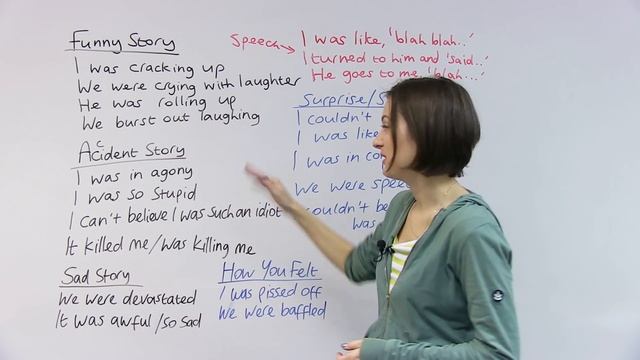 Funny Story
I was cracking up
We were crying with laughter
He was rolling up
We burst out laughing
Accident Story
I was in agony
I was so stupid
I can't believe I was such an idiot
It killed me/was killing me
Sad Story
We were devastated
It was awful/so sad
Speech
I was like, 'blah blah..'
I turned to him and 'said..'
He goes to me, 'blah...'
Surprise/S
I couldn't
I was like
I was in
We were
couldn't
was
How You Felt
I was pissed off
We were baffled